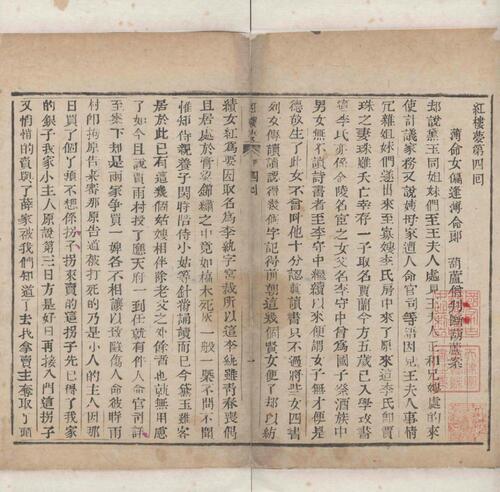 紅樓夢第四回
薄命女偏逢薄命郎 葫蘆僧判斷葫蘆案
却說黛玉同姐妹們至王夫人處見王夫人正和兄嫂處的來
使計議家務又說姨母家遭人命官司等語因見王夫人事情
冗雜姐妹們遂出來至寡嫂李氏房中來了原來這李氏即賈
珠之妻珠雖夭亡幸存一子取名賈蘭今方五歲已入學攻書
這李氏亦係金陵名宦之女父名李守中曾爲國子祭酒族中
男女無不讀詩書者至李守中繼續以來便謂女子無才便是
德故生了此女不曾叫他十分認真讀書只不過將些女四書
列女傳讀讀認得幾個字記得前朝這幾個賢女便了却以紡
四回
一
績女紅爲要因取名爲李紈字宮裁所以這李紈雖青春喪偶
且居處於膏粱錦繡之中竟如槁木死灰一般一槩不問不聞
惟知侍親養子閑時陪侍小姑等針黹誦讀而已今黛玉雖客
居於此已有這幾個姑嫂相伴除老父之外餘者也就無用慮
了如今且說賈雨村授了應天府一到任就有件人命官司詳
至案下却是兩家爭買一婢各不相讓以致毆傷人命彼時雨
村即拘原告來審那原告道被打死的乃是小人的主人因那
日買了個丫頭不想係拐子拐來賣的這拐子先已得了我家
的銀子我家小主人原說第三日方是好日再接入門這拐子
又悄悄的賣與了薛家被我們知道了去找拿賣主奪取丫頭